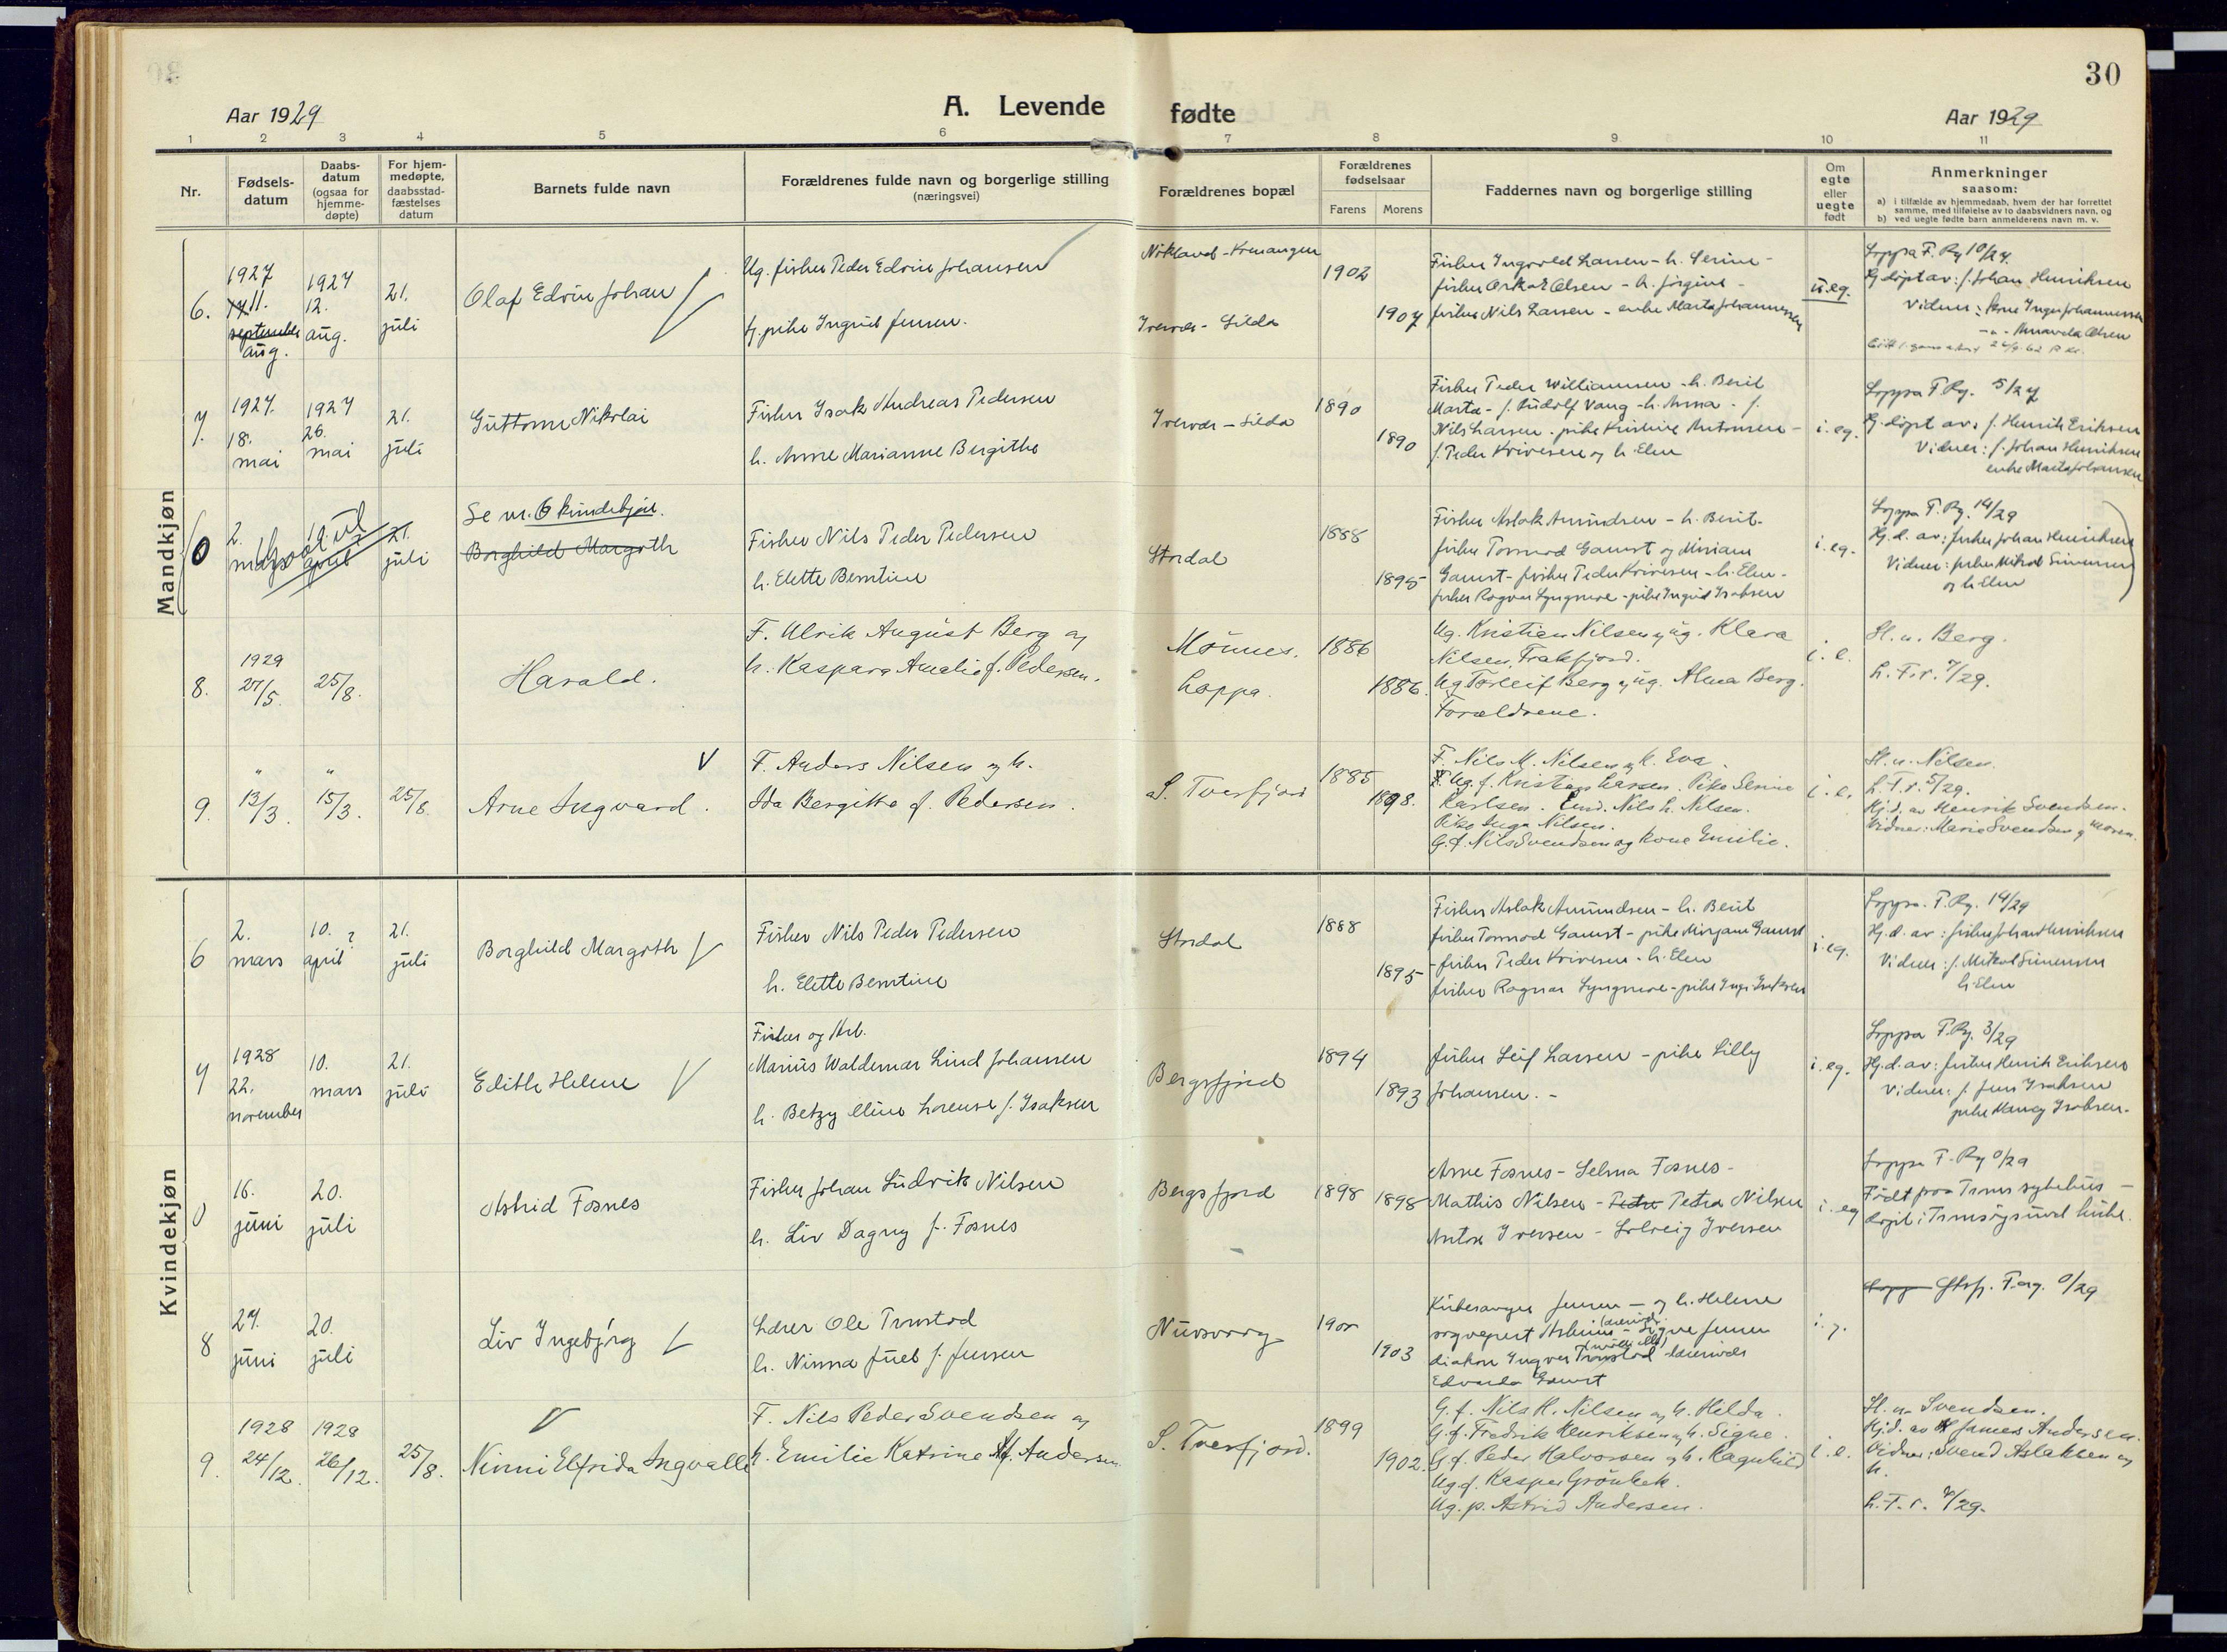 30
Aar 1929
A. Levende fødte
Aar 1929
1 2 3 4 5 6 7 8 9 10 11
Nr.
Fødsels-
datum
Daabs-
datum
(ogsaa for
hjemme-
døpte)
For hjem-
medøpte,
daabsstad-
fæstelses
datum
Barnets fulde navn
Forældrenes fulde navn og borgerlige stilling
(næringsvei)
Forældrenes bopæl
Forældrenes
fødselsaar
Farens Morens
Faddernes navn og borgerlige stilling
Om
egte
eller
uegte
født
Anmerkninger
saasom:
a) i tilfælde av hjemmedaab, hvem der har forrettet
samme, med tilføielse av to daabsvidners navn, og
b) ved uegte fødte barn anmelderens navn m. v.
Mandkjøn
6.
1927
11.
september
aug.
1927
12.
aug.
21.
juli
Olaf Edvin Johan
Ug. fisker Peder Edvin Johansen
f. pike Ingrid Jensen.
1902
1907
Fisker Ingvald Larsen - h. Serine -
fisker Oskar Olsen - h. Jørgine -
fisker Nils Larsen - enke Marta Johannessen
u.eg.
Loppa F. Rg
Hj. døpt av: f. Johan Henriksen
Vidner:
7.
1927.
18.
mai
1927
26.
mai
21.
juli
Guttorm Nikolai
Fisker Isak Andreas Pedersen
h. Anne Marianne Bergithe
Iversvær - Silda
1890
1890
Fisker Peder Williamsen - h. Berit
Marta - f. Rudolf Vang - h. Anna - f.
Nils Larsen - pike Kristine Antonsen -
f. Peder Kriversen og h. Elen
i. eg.
Loppa F. Rg. 5/27
Hj. døpt av: f. Henrik Eriksen
Vidner: f. Johan Henriksen
enke Marta Johansen
0
2.
mars
april
21.
juli
Se nr. 6 kvindekjøn.
Borghild Margoth
Fisker Nils Peder Pedersen
h. Elette Berntine
Stordal
1888
1895
Fisker Aslak Amundsen - h. Berit -
fisker Tormod Gamst og Miriam
Gamst - fisker Peder Kriversen - h. Elen -
fisker Ragnar Lyngmoe - pike Ingrid Isaksen
i. eg.
Loppa F. Rg. 14/29
Hj. d. av: fisker Johan Henriksen
Vidner: fisker Mikal Simonsen
og h. Elen
8.
1929
27/5.
25/8.
Harald.
F. Ulrik August Berg og
h. Kaspara Amalie f. Pedersen.
Loppa.
1886
1886.
Ug. Kristian Nilsen og ug. Klara
Nilsen, Frakfjord.
Ug. Torleif Berg og ug. Alma Berg.
Forældrene.
i. e.
H. n. Berg.
L. F. r. 7/29.
9.
"
13/3.
"
15/3.
25/8.
Arne Ingvard.
F. Anders Nilsen og h.
Ida Bergitte f. Pedersen.
S. Tverfjord
1885
1898.
F. Nils M. Nilsen og h. Eva.
Ug. f. Kristian Larsen. Pike Serine
Karlsen. Em. Nils L. Nilsen.
Pike Inga Nilsen.
G. f. Nils Svendsen og kone Emilie.
i. e.
H. n. Nilsen.
L. F. r. 5/29.
Hj. d. av Henrik Svendsen.
Vidner: Marie Svendsen og moren.
Kvindekjøn
6
2.
mars
10. ?
april
21.
juli
Borghild Margoth
Fisker Nils Peder Pedersen
h. Elette Berntine
Stordal
1888
1895
Fisker Aslak Amundsen - h. Berit
fisker Tormod Gamst - pike Mirjam Gamst
- fisker Peder Kriversen - h. Elen
fisker Ragnar Lyngmoe - pike Inga Isaksen
i. eg.
Loppa. F. Rg. 14/29
Hj. d. av: fisker Johan Henriksen
Vidner: f. Mikal Simonsen
h. Elen
7
1928
22.
november
10.
mars
21.
juli
Edith Helene
Fisker og Arb.
Marius Waldemar Lind Johansen
h. Betzy Eline Lorense f. Isaksen
Bergsfjord
1894
1893
fisker Leif Larsen - pike Lilly
Johansen. -
i. eg.
Loppa F. Rg. 3/29
Hj. d. av: fisker Henrik Eriksen
Vidner: f. Jens Isaksen
pike Nancy Isaksen.
0
16.
juni
20.
juli
Astrid Fosnes
Fisker Johan Ludvik Nilsen
h. Liv Dagny f. Fosnes
Bergsfjord
1898
1898
Arne Fosnes - Selma Fosnes -
Mathis Nilsen - Petra Petra Nilsen
Anton Iversen - Solveig Iversen
i. eg
Loppa F. Rg 0/29
Født paa Troms sykehus -
8
27.
juni
20.
juli
Liv Ingebjørg
Lærer Ole Trustad
h. Ninna Juel f. Jensen
Nuvsvaag
1900
1903
Kirkesanger Jensen - og h. Helene
Signe Jensen
diakon Ingvar Trustad
Edvarda Gamst
Loppa F. rg. 0/29
9.
1928
24/12.
1928
26/12.
25/8.
Ninni Elfrida Ingvalle
F. Nils Peder Svendsen og
h. Emilie Katrine f. Andersen.
S. Tverfjord.
1899
1902.
G. f. Nils H. Nilsen og h. Hilda.
G. f. Fredrik Henriksen og h. Signe.
G. f. Peder Halvorsen og h. Ragnhild
Ug. f. Kasper Grønbek.
Ug. p. Astrid Andersen.
i. e.
H. n. Svendsen.
Hj. d. av James Andersen.
Vidner: Svend Aslaksen og
h.
L. F. r. 7/29.